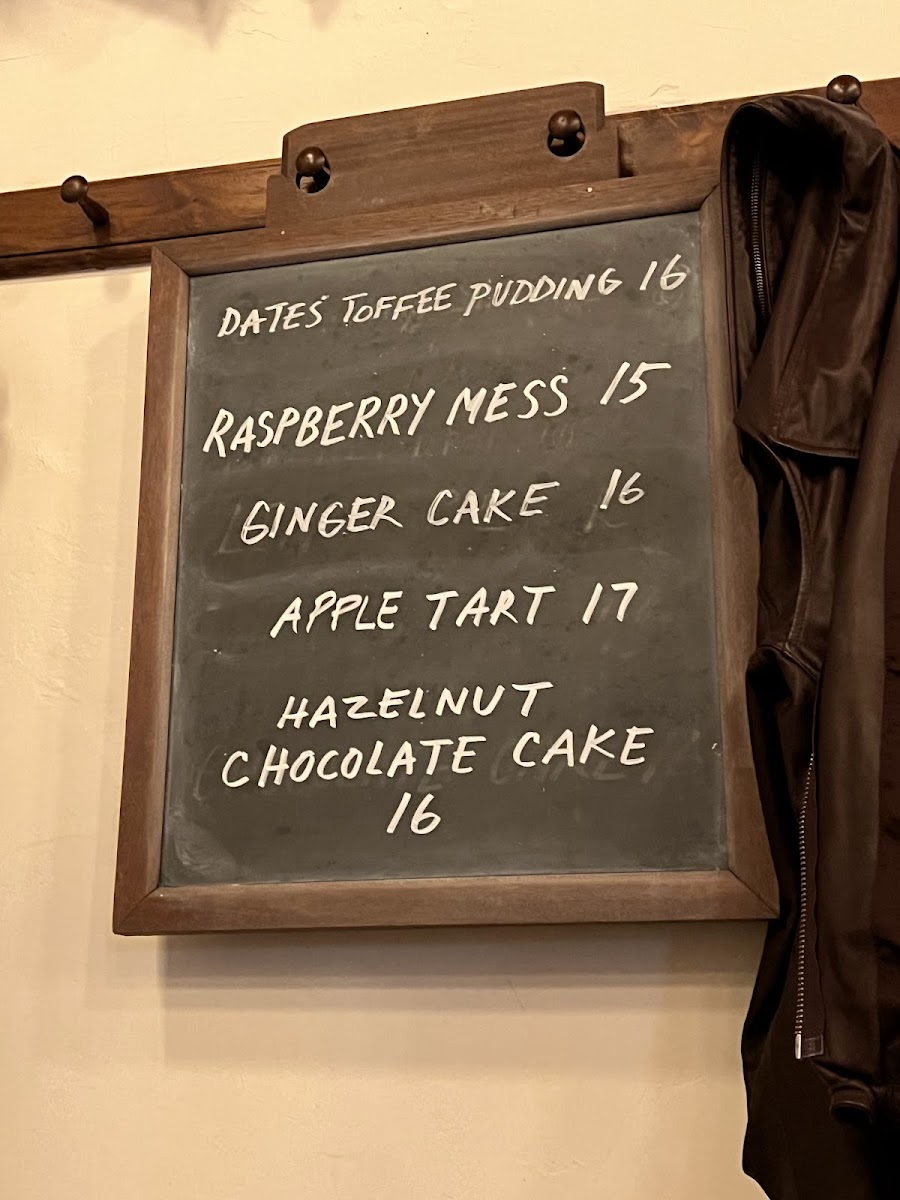 DATES TOFFEE PUDDING 16
RASPBERRY MESS 15
GINGER CAKE 16
APPLE TART 17
HAZELNUT
CHOCOLATE CAKE
16